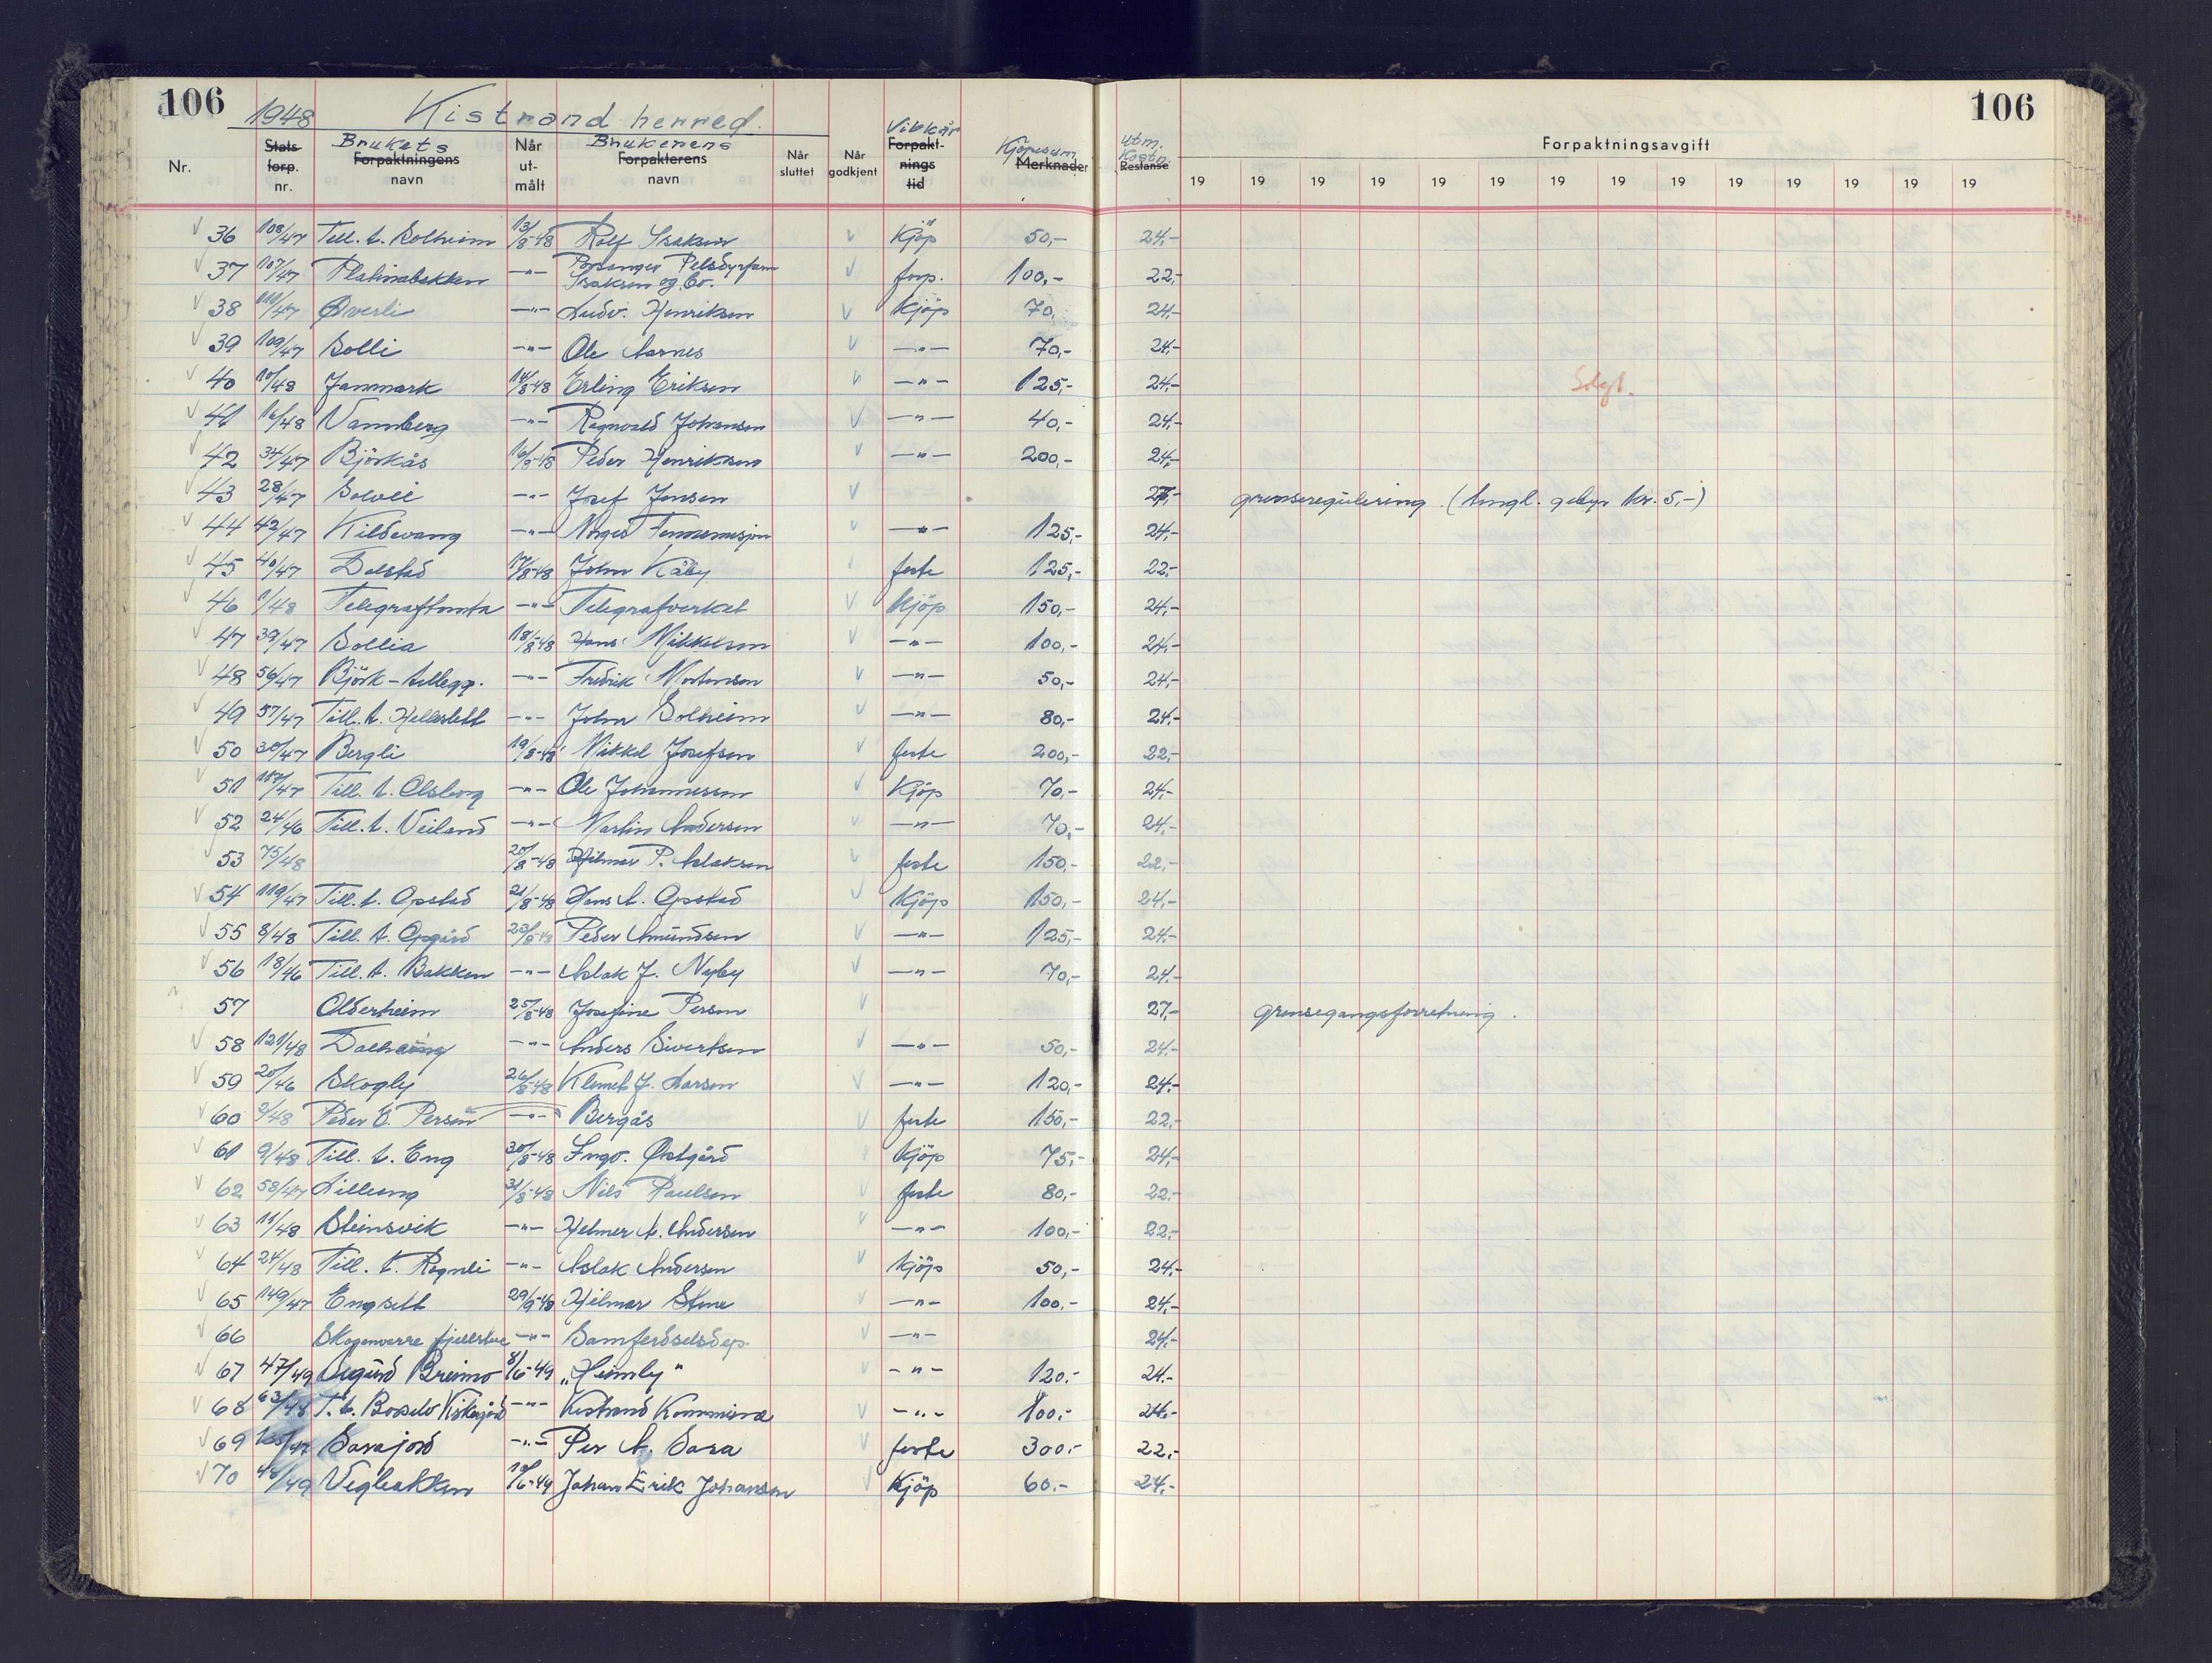 106
106
1948 Kistrand herred.
Nr. Stats forp. nr. Brukets Forpaktningens navn Når ut- målt Brukerens Forpakterens navn Når sluttet Når godkjent Vilkår Forpakt- nings tid Kjöpesum Merknader Utm. Kostn. Restanse Forpaktningsavgift
19 19 19 19 19 19 19 19 19 19 19 19 19 19
36 108/47 Till. t. Solheim 13/8-48 Rolf Isaksen Kjöp 50,- 24,-
37 107/47 Platinabakken -"- Porsanger Pelsdyrfarm Isaksen og Co. forp. 100,- 22,-
38 111/47 Øverli -"- Ludv. Henriksen Kjöp 70, 24,-
39 109/47 Solli -"- Ole Aarnes -"- 70,- 24,-
40 10/48 Janmark 14/8-48 Erling Eriksen -"- 125,- 24,-
41 16/48 Vannberg -"- Ragnvald Johansen -"- 40,- 24,-
42 34/47 Björkås 16/8-48 Peder Henriksen -"- 200,- 24,-
43 28/47 Solvei -"- Josef Jensen 27,- grenseregulering. (tingl. gebyr kr. 5,-)
44 42/47 Kildevang -"- Norges Finnemisjon -"- 125,- 24,-
45 40/47 Dalstad 17/8-48 John Käby feste 125,- 22,-
46 1/48 Telegraftomta -"- Telegrafverket Kjöp 150,- 24,-
47 39/47 Sollia 18/8-48 Hans Mikkelsen -"- 100,- 24,-
48 56/47 Björk-tillegg. -"- Fredrik Mortensen -"- 50,- 24,-
49 57/47 Till. t. Helleslett -"- John Solheim -"- 80,- 24,-
50 30/47 Bergli 19/8-48 Mikkel Josefsen feste 200,- 22,-
51 117/47 Till. t. Olsborg -"- Ole Johannessen Kjöp 70,- 24,-
52 24/46 Till. t. Veiland -"- Martin Andersen -"- 70,- 24,-
53 75/48 20/8-48 Hilmar P. Aslaksen feste 150,- 22,-
54 119/47 Till. t. Opstad 21/8-48 Hans A. Opstad Kjöp 150,- 24,-
55 8/48 Till. t. Opgård 23/8-48 Peder Amundsen -"- 125,- 24,-
56 18/46 Till. t. Bakken -"- Aslak J. Nyby -"- 70,- 24,-
57 Olderheim 25/8-48 Josefine Persen 27,- grensegangsforretning.
58 121/48 -"- Anders Sivertsen -"- 50,- 24,-
59 20/46 Skogly 26/8-48 Klemet J. Larsen -"- 120,- 24,-
60 2/48 Peder E. Persen -"- Bergås feste 150,- 22,-
61 9/48 Till. t. Eng 30/8-48 Ingv. Østgård Kjöp 75,- 24,-
62 58/47 Lilleeng 31/8-48 Nils Paulsen feste 80,- 22,-
63 11/48 Steinsvik -"- Helmer A. Andersen -"- 100,- 22,-
64 24/48 Till. t. Rognli -"- Aslak Andersen Kjöp 50,- 24,-
65 149/47 Engslett 29/9-48 Hilmar Stene -"- 100,- 24,-
66 Skoganvarre fjellstue -"- Samferdselsdep. -"- 24,-
67 47/49 Sigurd Breimo 8/6-49 "Heimly" -"- 120.- 24.-
68 63/48 T. t. Börselv Kirkegård -"- Kistrand Kommune -"- 100.- 24.-
69 Sarajord -"- Per A. Sara feste 300.- 22.-
70 48/49 Vegbakken 10/6-49 Johan Erik Johansen Kjöp 60.- 24.-